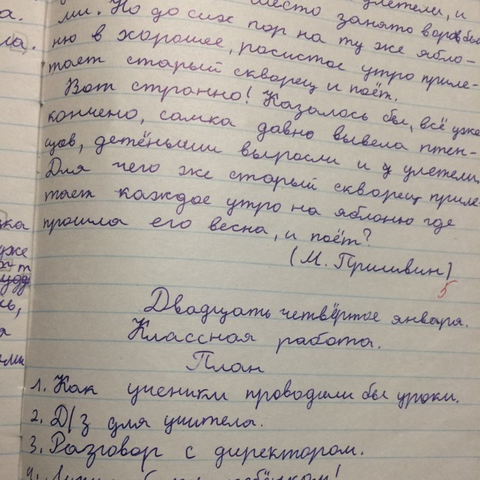 место занято воробьё
ми. Но до сих пор на ту же ябло-
ню в хорошее, росистое утро приле-
тает старый скворец и поёт.
Вот странно! Казалось бы, всё уже
кончено, самка давно вывела птен-
цов, детёныши выросли и улетели.
Для чего же старый скворец приле
тает каждое утро на яблоню где
прошла его весна, и поёт?
(М. Пришвин)
5
Двадцать четвёртое января.
Классная работа.
План
1. Как ученики проводили бы уроки.
2. Д/з для учителя.
3. Разговор с директором.
4.